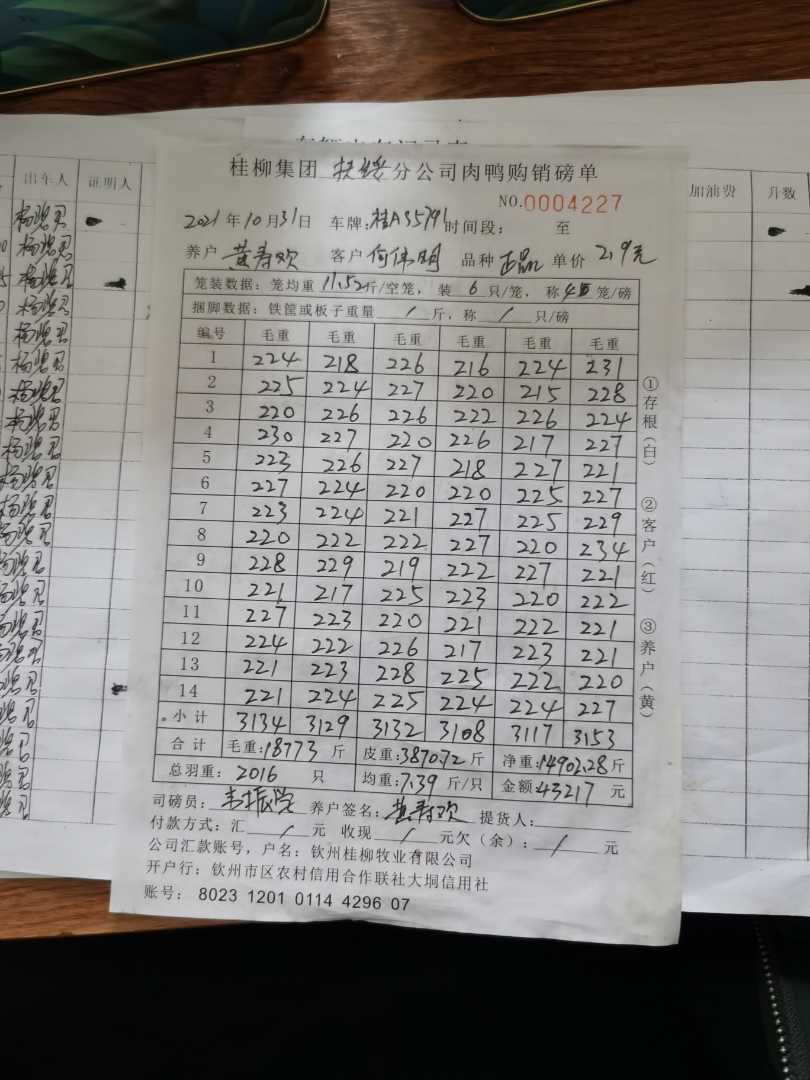 出车人 证明人
加油费 升数
桂柳集团 扶绥 分公司肉鸭购销磅单
NO.0004227
2021年10月31日 车牌:桂A35791 时间段: 至
养户 黄寿欢 客户 何伟明 品种 正品 单价 2.9元
笼装数据:笼均重 11.52 斤/空笼,装 6 只/笼,称 4 笼/磅
捆脚数据:铁筐或板子重量 / 斤,称 / 只/磅
编号 毛重 毛重 毛重 毛重 毛重 毛重
1 224 218 226 216 224 231
2 225 224 227 220 215 228
3 220 226 226 222 226 224
4 230 227 220 226 217 227
5 223 226 227 218 227 221
6 227 224 220 220 225 227
7 223 224 221 227 225 229
8 220 222 222 227 220 234
9 228 229 219 222 227 221
10 221 217 225 223 220 222
11 227 223 220 221 222 221
12 224 222 226 217 223 221
13 221 223 228 225 222 220
14 221 224 225 224 224 227
小计 3134 3129 3132 3108 3117 3153
合计 毛重:18773斤 皮重:3870.72斤 净重:14902.28斤
总羽重: 2016 只 均重:7.39 斤/只 金额:43217 元
司磅员: 韦振学 养户签名: 黄寿欢 提货人:
付款方式:汇 / 元 收现 / 元欠(余): / 元
公司汇款账号,户名:钦州桂柳牧业有限公司
开户行:钦州市区农村信用合作联社大垌信用社
账号: 8023 1201 0114 4296 07
①存根(白) ②客户(红) ③养户(黄)